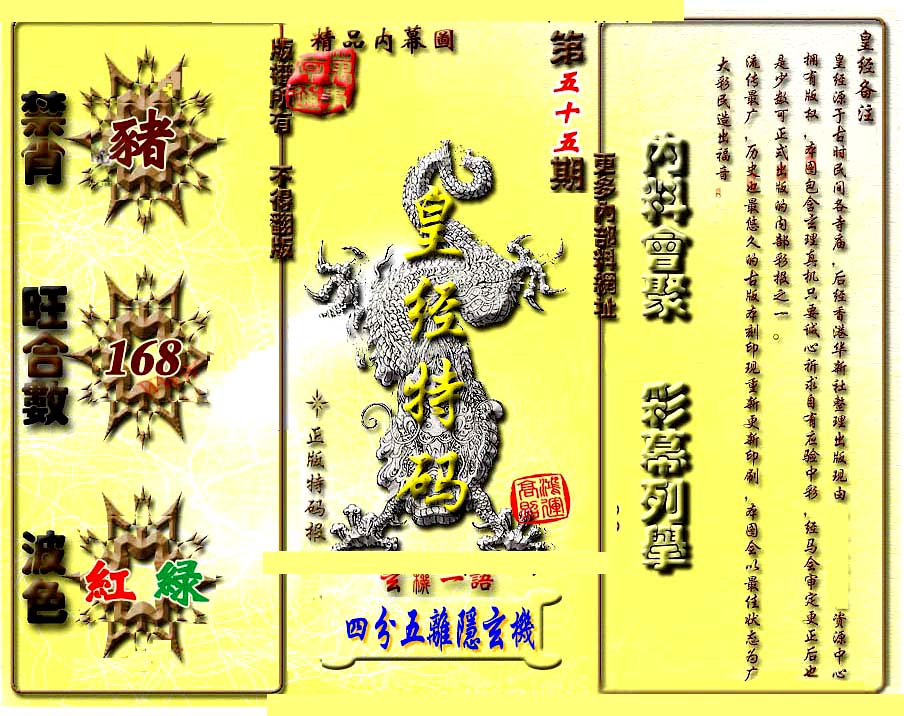 禁肖
豬
旺合數
168
波色
紅 綠
版權所有 不得翻版
精品内幕圖
第五十五期
皇经特码
正版特码报
鴻運高照
玄機一語
四分五離隱玄機
更多內部料網址
内料會聚
彩幕列舉
皇经备注
皇经源于古时民间各寺庙，后经香港华新社整理出版现由 资源中心
拥有版权，本图包含玄理真机只要诚心祈求自有应验中彩，经马会审定更正后也
是少数可正式出版的内部彩报之一。
流传最广，历史也最悠久的古版本刻印现重新更新印刷，本图会以最佳状态为广
大彩民造出福音